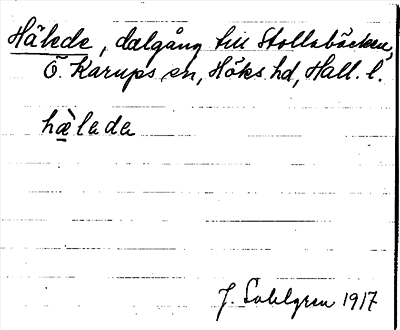 Hälede, dalgång till Stollabäcken,
Ö. Karups sn, Höks hd, Hall. l.
hæ̀lada
J. Sahlgren 1917